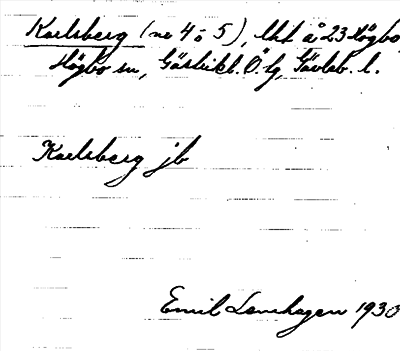 Karlsberg (nr 4 o 5), lht å 23 Högbo
Högbo sn, Gästrikl. Ö. tg, Gävleb. l.
Karlsberg jb
Emil Lenhagen 1930